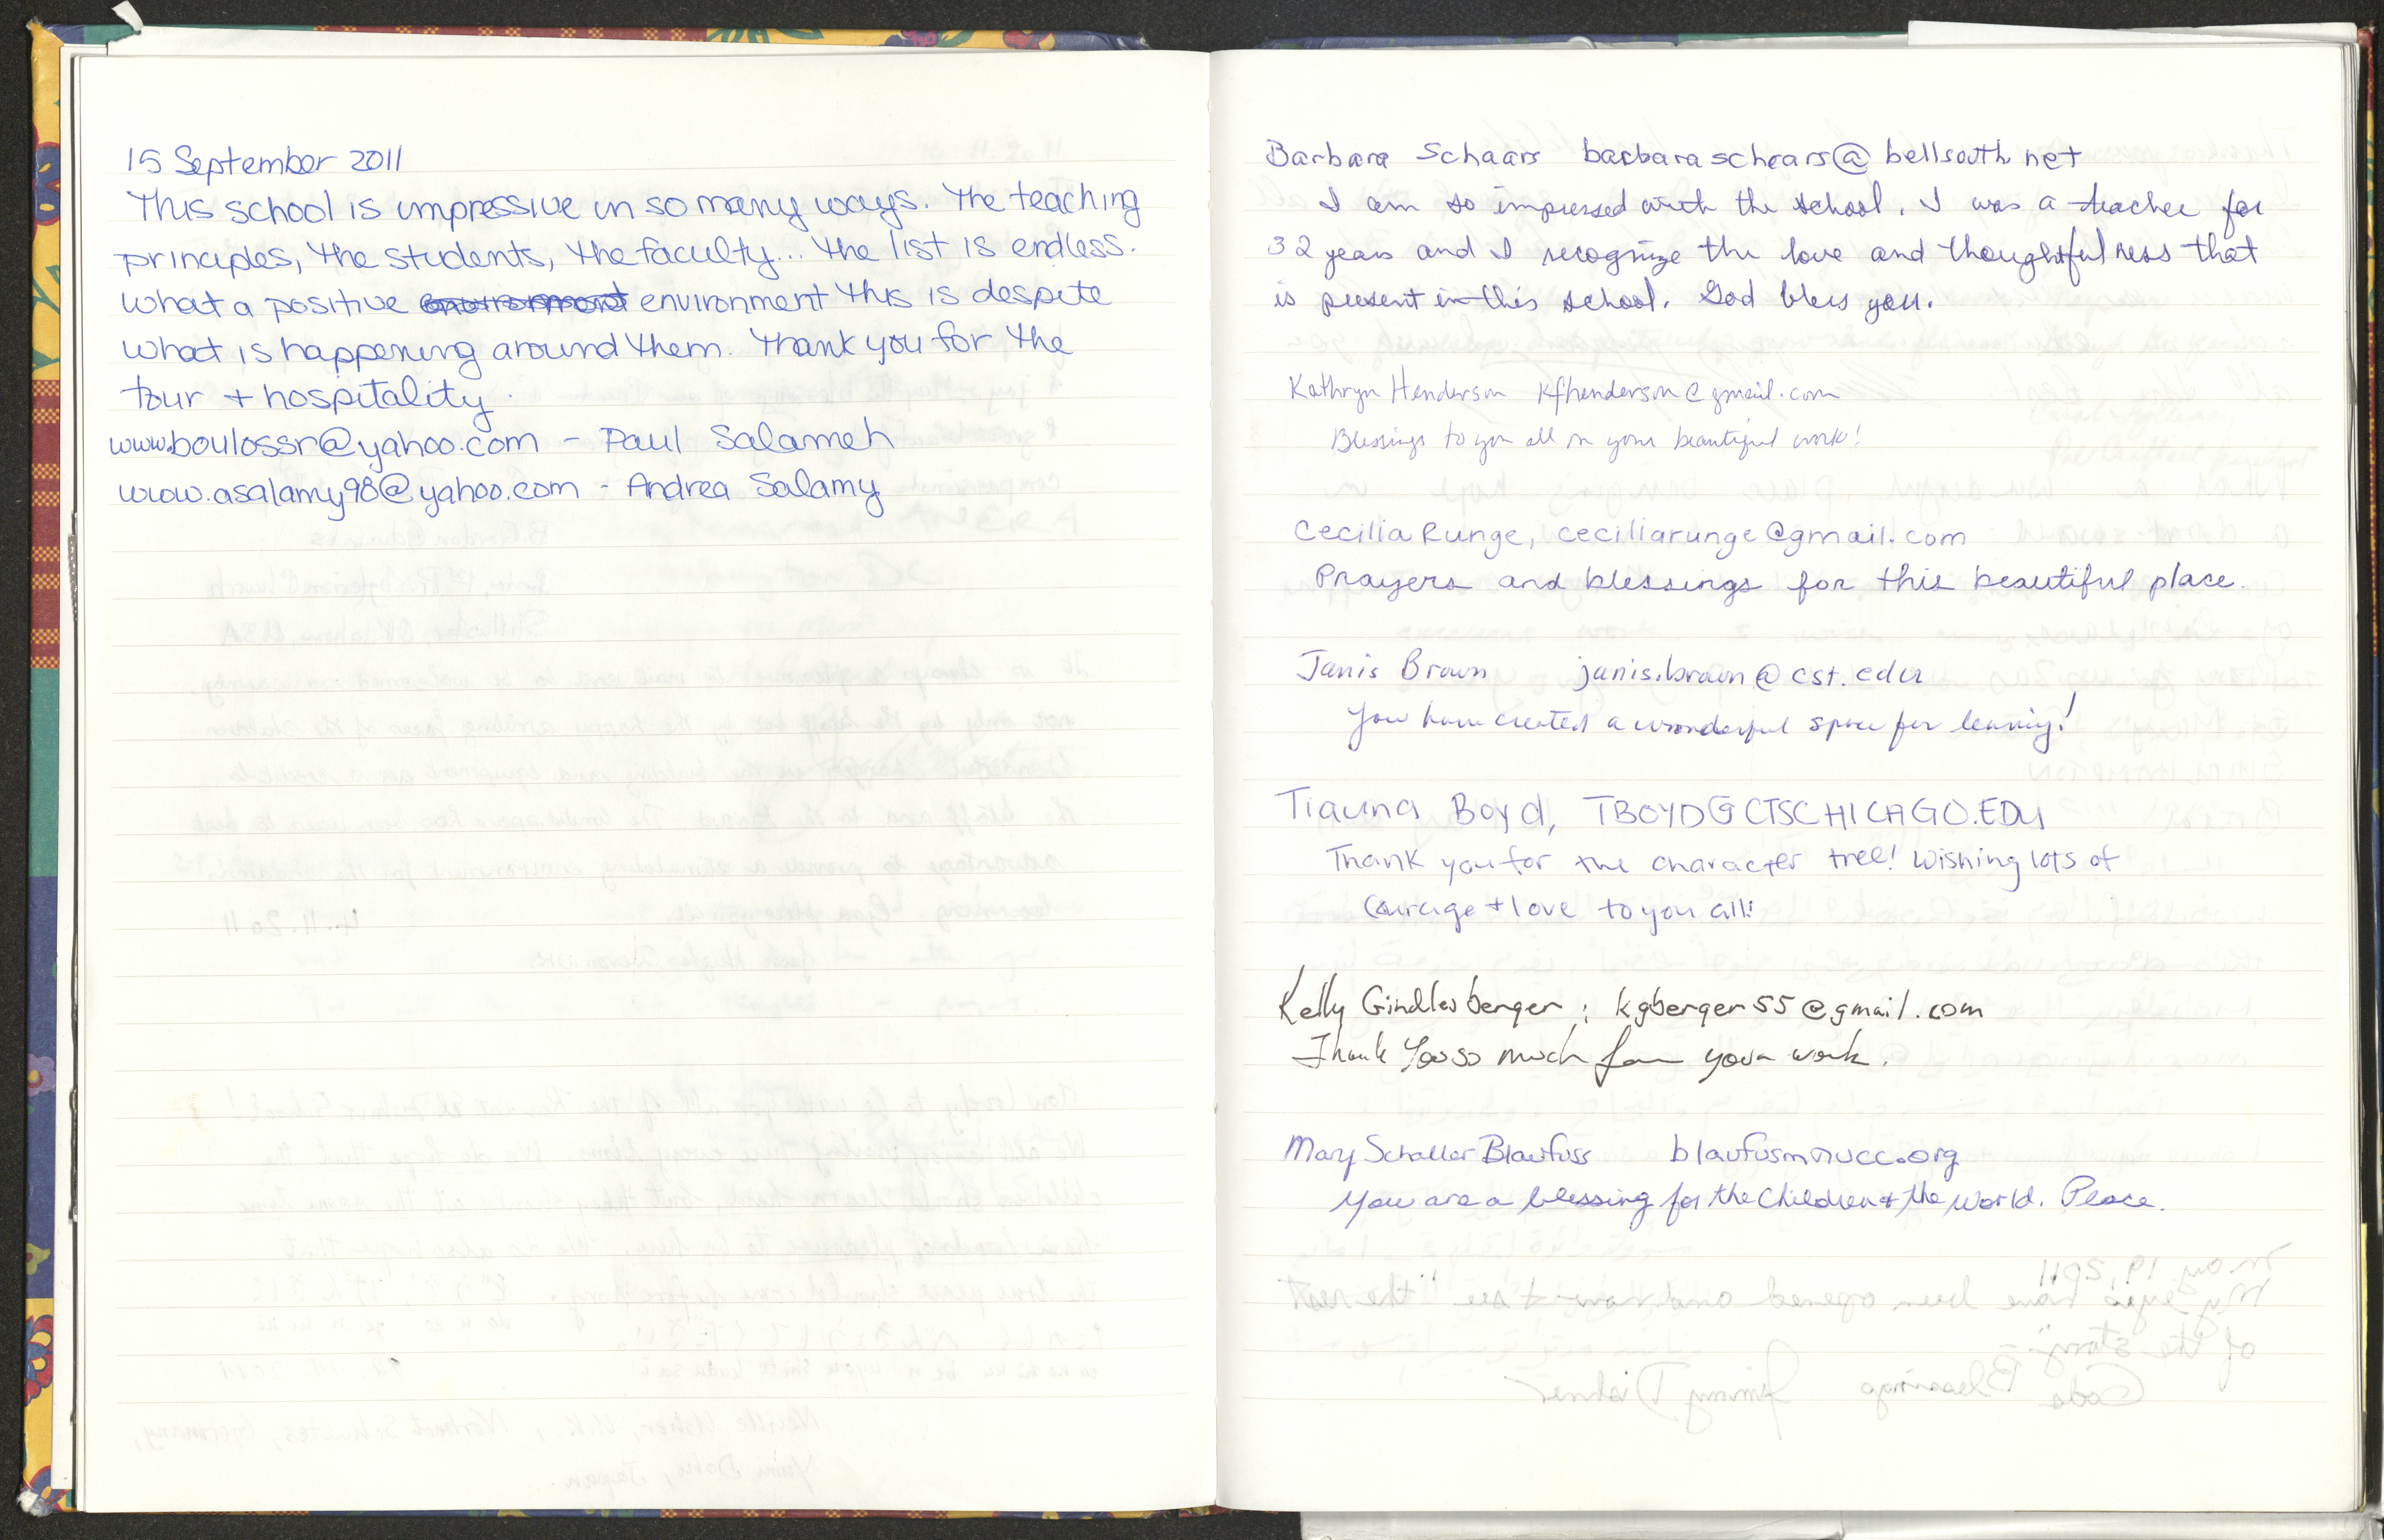 15 September 2011
This school is impressive in so many ways. The teaching
principles, the students, the faculty... the list is endless.
What a positive environment environment this is despite
what is happening around them. Thank you for the
tour + hospitality.
www.boulossr@yahoo.com - Paul Salameh
www.asalamy98@yahoo.com - Andrea Salamy
Barbara Schaars barbaraschaars@bellsouth.net
I am so impressed with the school. I was a teacher for
32 years and I recognize the love and thoughtfulness that
is present in this school. God bless you.
Kathryn Henderson kfhenderson@gmail.com
Blessings to you all in your beautiful work!
Cecilia Runge, ceciliarunge@gmail.com
Prayers and blessings for this beautiful place.
Janis Brown janis.brown@cst.edu
You have created a wonderful space for learning!
Tiauna Boyd, TBOYD@CTSCHICAGO.EDU
Thank you for the character tree! Wishing lots of
Courage + love to you all!
Kelly Gindlesberger ; kgberger55@gmail.com
Thank You so much for your work.
Mary Schaller Blaufuss blaufusm@ucc.org
You are a blessing for the children & the world. Peace.